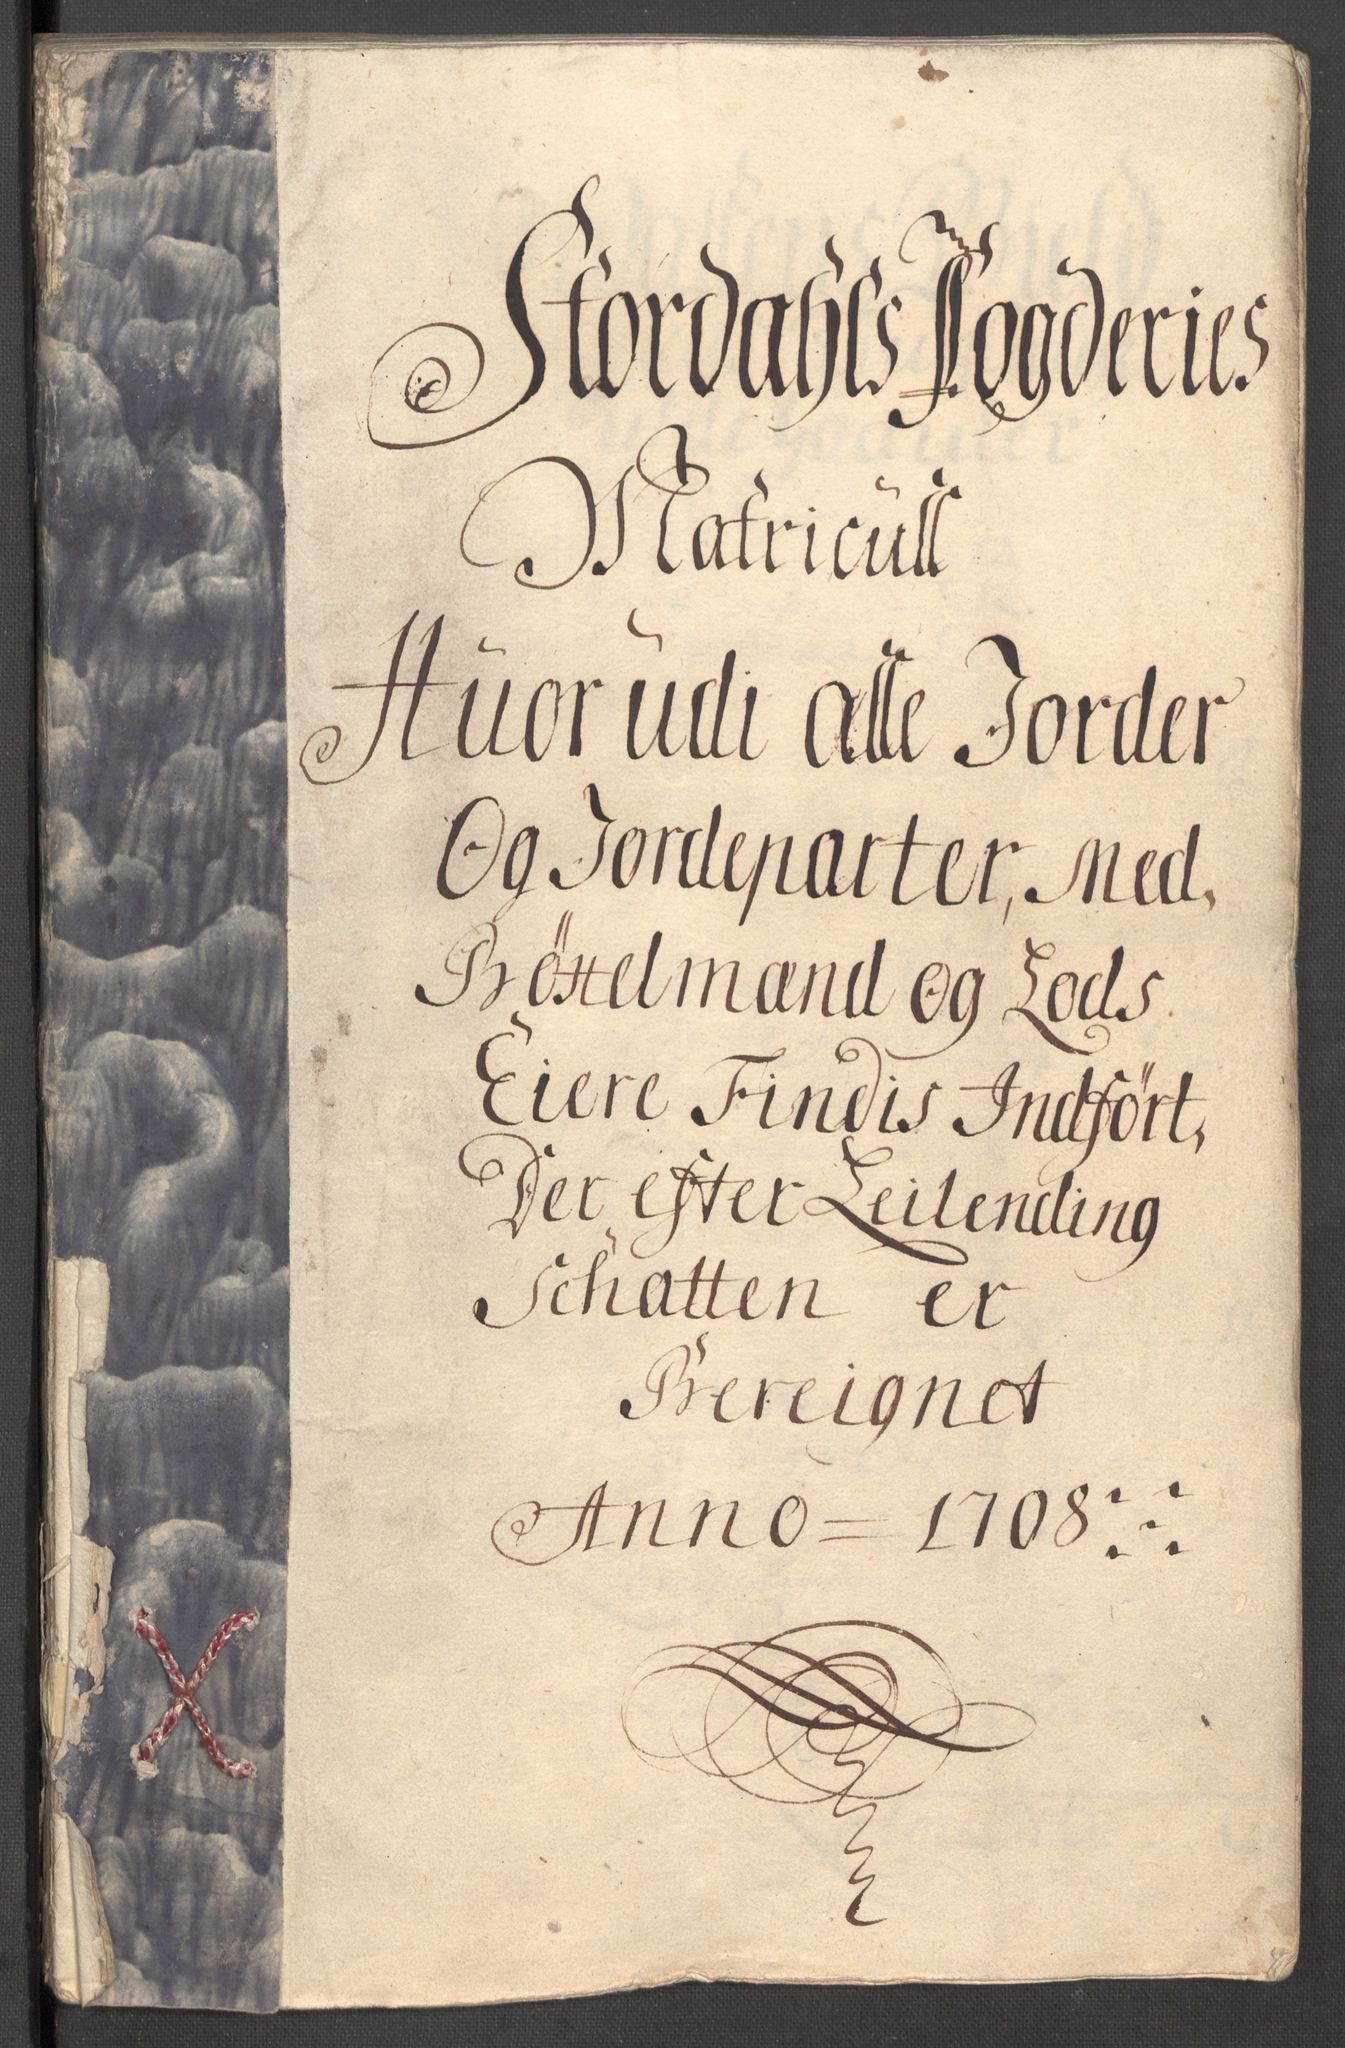 Stordahls Fogderies
Matricull
Huor udi alle Jorder
Og Jordeparter, Med,
Böxelmænd og Lods
Eiere Findis Indfört,
Der efter Leilending
Schatten er
Bereignet
Anno = 1708